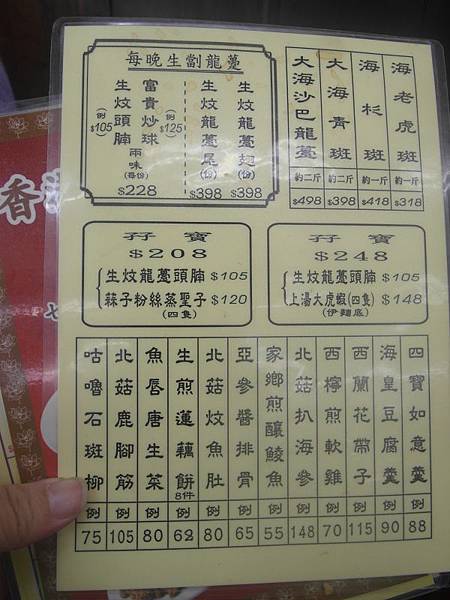 每晚生劏龍躉
生炆龍躉翅(份)
$398
生炆龍躉尾(份)
$398
富貴炒球
(例)$125
生炆頭腩
(例)$105
兩味(每份)
$228
海老虎斑
約一斤
$318
海杉斑
約一斤
$418
大海青斑
約二斤
$398
大海沙巴龍躉
約二斤
$498
孖寶
$208
生炆龍躉頭腩 $105
蒜子粉絲蒸聖子 $120
(四隻)
孖寶
$248
生炆龍躉頭腩 $105
上湯大虎蝦(四隻) $148
(伊麵底)
四寶如意羹
例
88
海皇豆腐羹
例
90
西蘭花帶子
例
115
西檸煎軟雞
例
70
北菇扒海參
例
148
家鄉煎釀鯪魚
例
55
亞參醬排骨
例
65
北菇炆魚肚
例
80
生煎蓮藕餅
8件
例
62
魚唇唐生菜
例
80
北菇鹿腳筋
例
105
咕嚕石斑柳
例
75
香